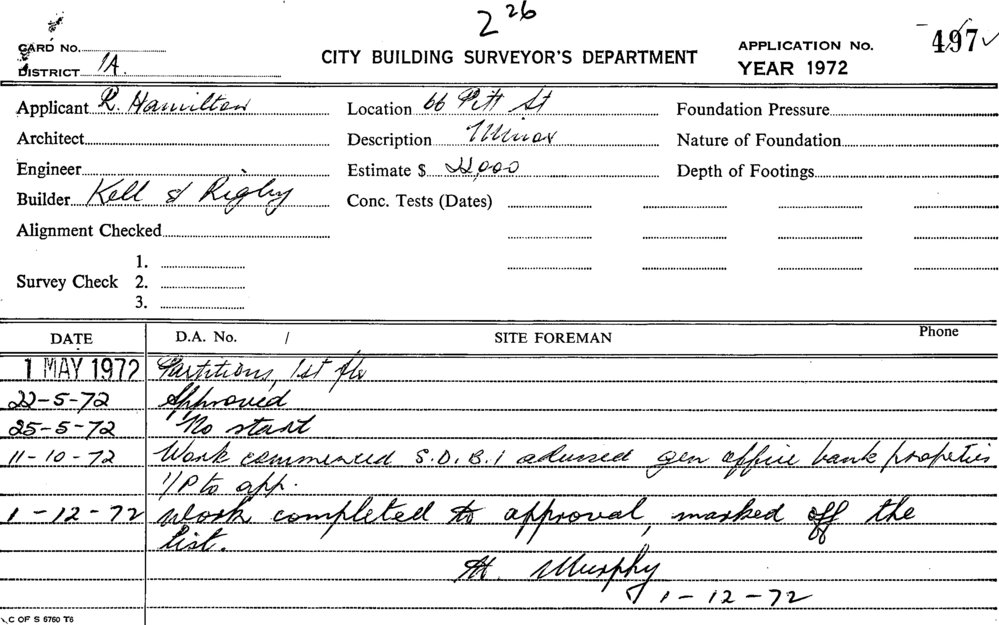 2 26
CARD NO.
DISTRICT 1A.
CITY BUILDING SURVEYOR'S DEPARTMENT
APPLICATION NO. 497
YEAR 1972
Applicant R. Hamilton
Location 66 Pitt St
Foundation Pressure
Architect
Description Minor
Nature of Foundation
Engineer
Estimate $
Depth of Footings
Builder Kell & Rigby
Conc. Tests (Dates)
Alignment Checked
Survey Check
1.
2.
3.
DATE
D.A. No. /
SITE FOREMAN
Phone
1 MAY 1972 Partitions, 1st flr
22-5-72 Approved
25-5-72 No start
11-10-72 Work commenced S.D.B.I advised gen office bank propeties
I/P to app.
1-12-72 Work completed to approval, marked off the
list.
Murphy
1-12-72
C OF S 6760 T6